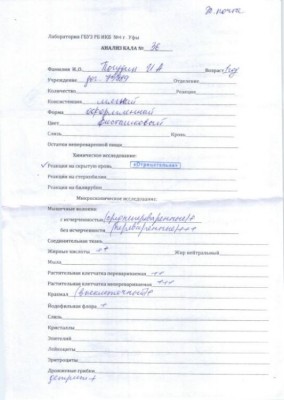 Лаборатория ГБУЗ РБ ИКБ №4 г. Уфы
АНАЛИЗ КАЛА № 36
Фамилия И.О. И.А. Возраст 1 год
Учреждение Отделение
Количество Реакция
Консистенция мягкий
Форма оформленной
Цвет
Слизь Кровь
Остатки непереваренной пищи
Химическое исследование:
✓ Реакция на скрытую кровь «Отрицательная»
Реакция на стеркобилин
Реакция на билирубин
Микроскопическое исследование:
Мышечные волокна
с исчерченностью (непереваренные) +
без исчерченности (переваренные) ++
Соединительная ткань
Жирные кислоты ++ Жир нейтральный
Мыла
Растительная клетчатка перевариваемая ++
Растительная клетчатка неперевариваемая +++
Крахмал (внеклеточный) +
Йодофильная флора +
Слизь
Кристаллы
Эпителий
Лейкоциты
Эритроциты
Дрожжевые грибки
детрит +